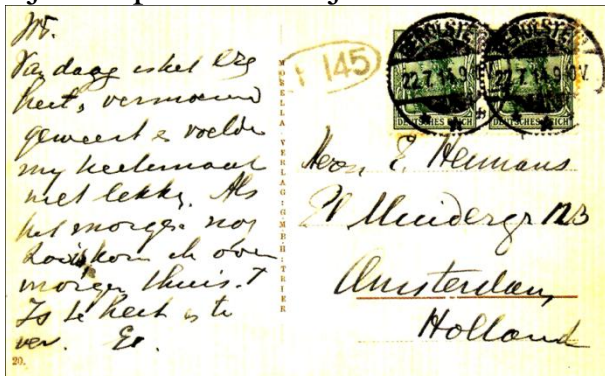 Van daag is het erg
heet, vermoeid
geweest & voelde
my heelemaal
niet lekker. Als
het morgen nog
zoo is kom ik over
morgen thuis.
Is te heet & te
ver.
20.
MORELLA-VERLAG: GMBH: TRIER
145
GEROLSTEIN
22.7.14. 9-10V.
DEUTSCHES REICH
GEROLSTEIN
22.7.14. 9-10V.
DEUTSCHES REICH
Heer E. Hermans
Pl Muidergr 123
Amsterdam
Holland